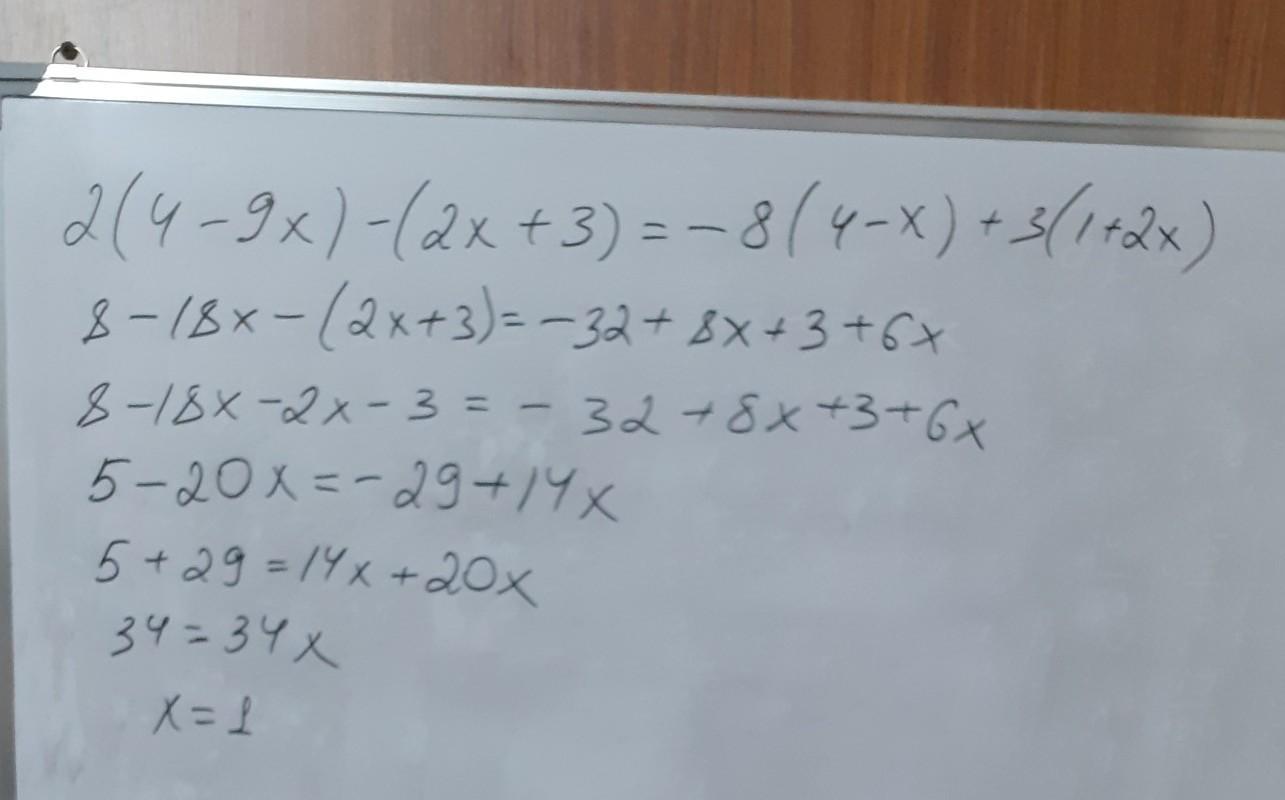 2(4-9x)-(2x+3)=-8(4-x)+3(1+2x)
8-18x-(2x+3)=-32+8x+3+6x
8-18x-2x-3=-32+8x+3+6x
5-20x=-29+14x
5+29=14x+20x
34=34x
x=1